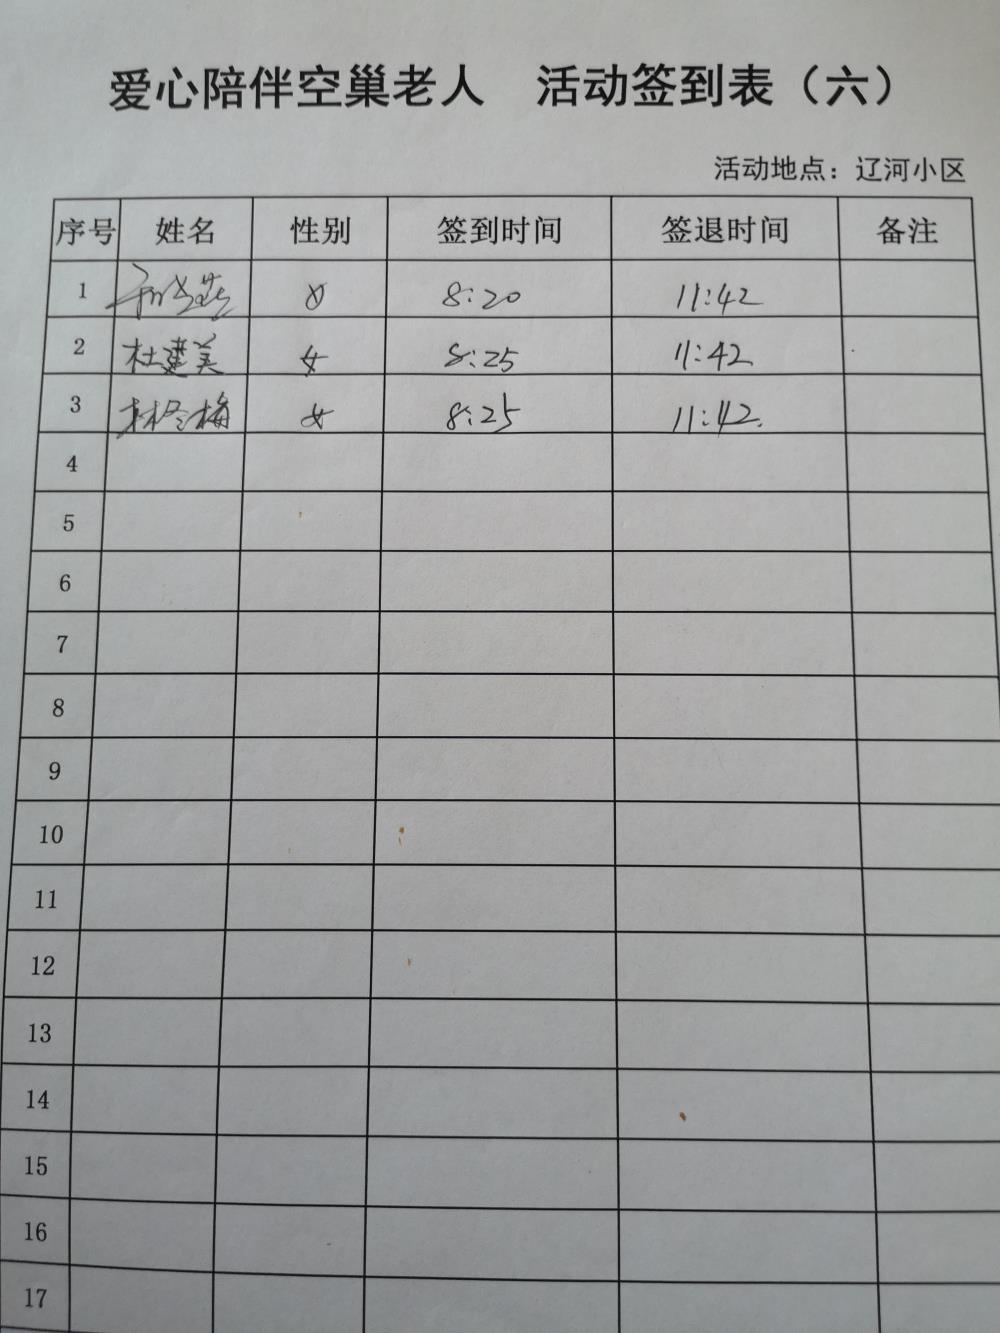 爱心陪伴空巢老人 活动签到表（六）
活动地点：辽河小区
序号 姓名 性别 签到时间 签退时间 备注
1 女 8:20 11:42
2 杜建美 女 8:25 11:42
3 林 梅 女 8:25 11:42.
4
5
6
7
8
9
10
11
12
13
14
15
16
17